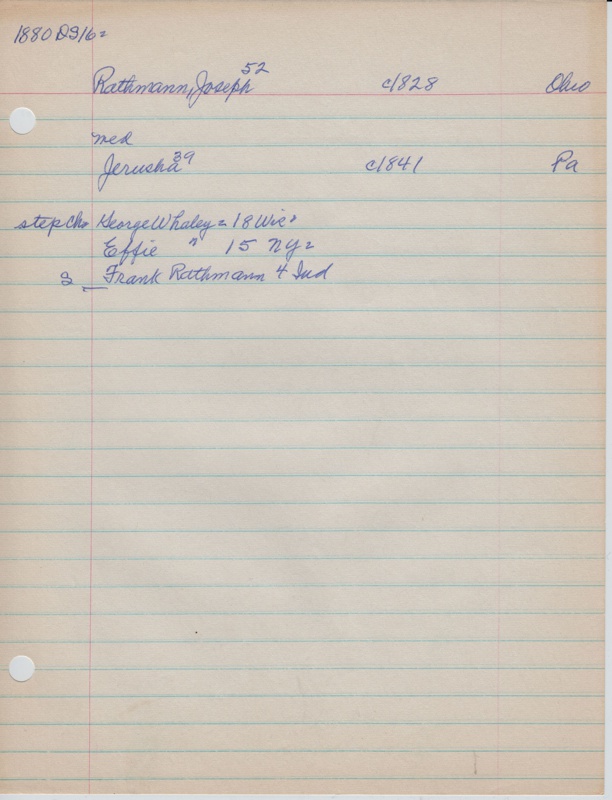 1880 DS16=
Rathmann, Joseph 52 c1828 Ohio
med
Jerusha 39 c1841 Pa
step ch= George Whaley = 18 Wis=
Effie " 15 Ny=
S – Frank Rathmann 4 Ind